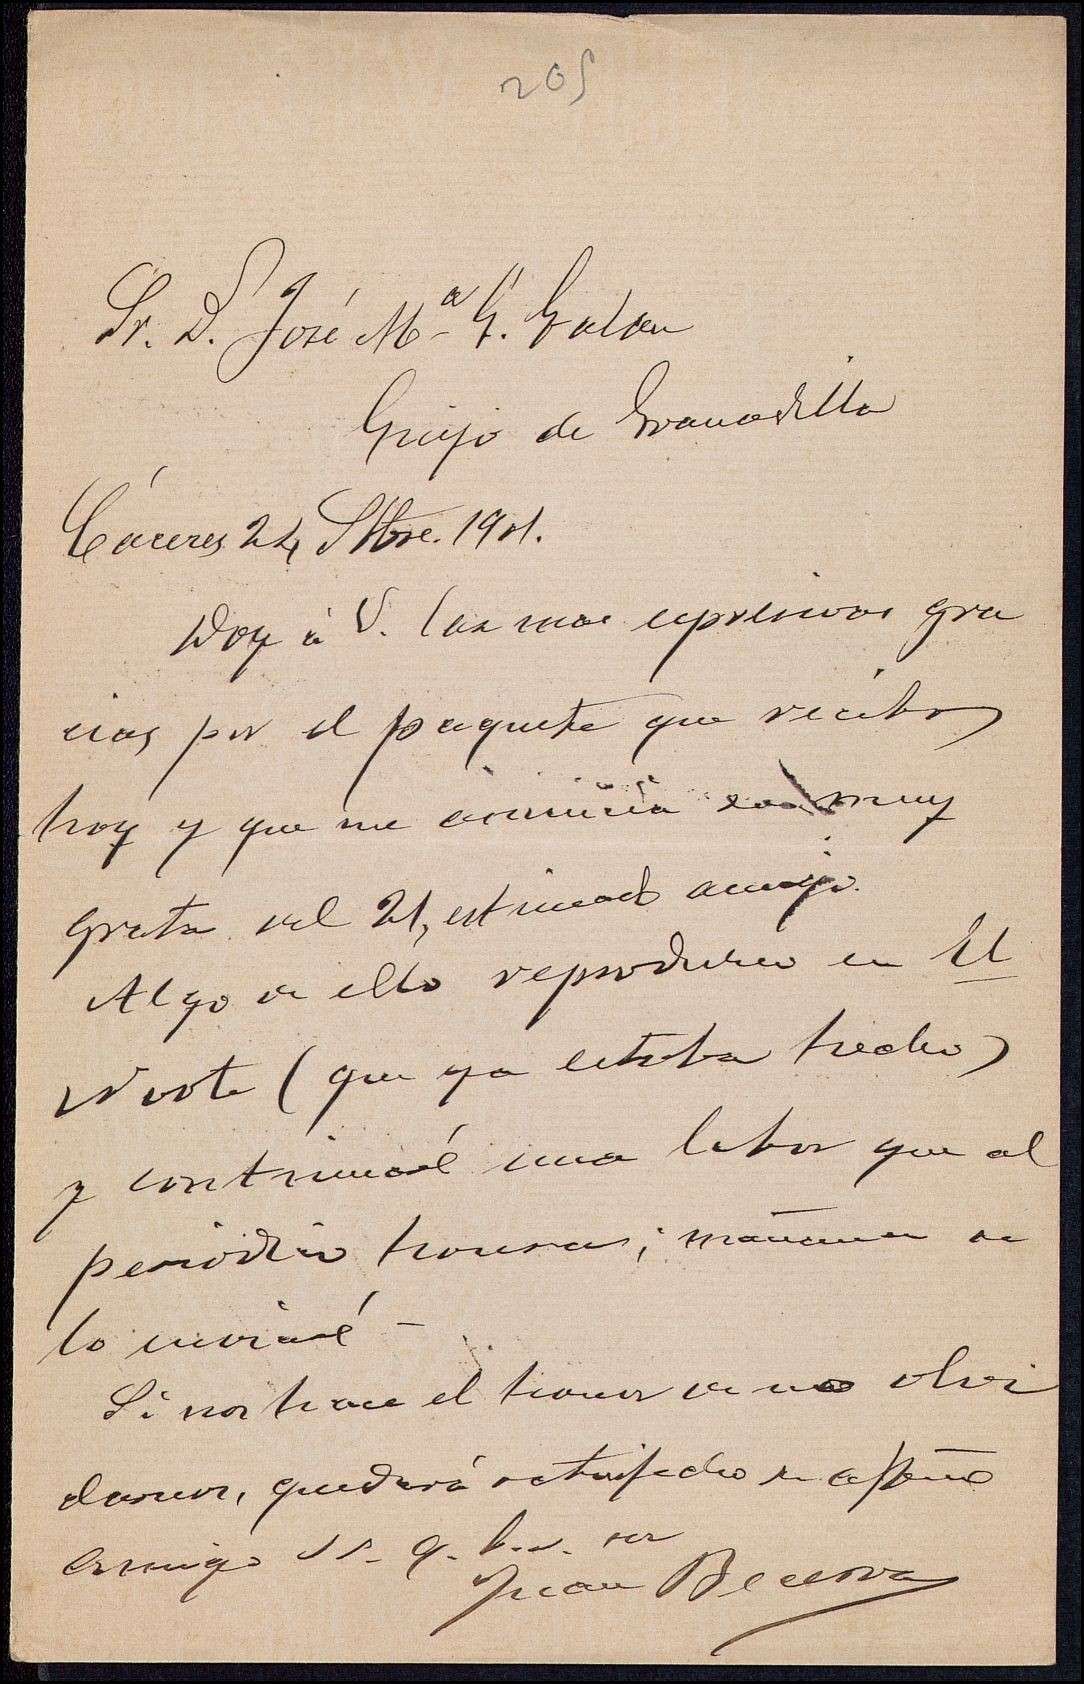 205
Sr. D. José Mª G. Galan
Guijo de Granadilla
Cáceres 24 Stbre. 1901.
Doy á V. las mas expresivas gra
cias por el paquete que recibo
hoy y que me anuncia su muy
grata del 21, estimado amigo.
Algo de ello reproduzco en El
Norte (que ya estaba hecho)
y continuaré una labor que al
periódico honra; mañana se
lo enviaré -
Si nos hace el honor de no olvi
darnos, quedará satisfecho su afmo
amigo ss. q. b. s. m
Juan Becerra